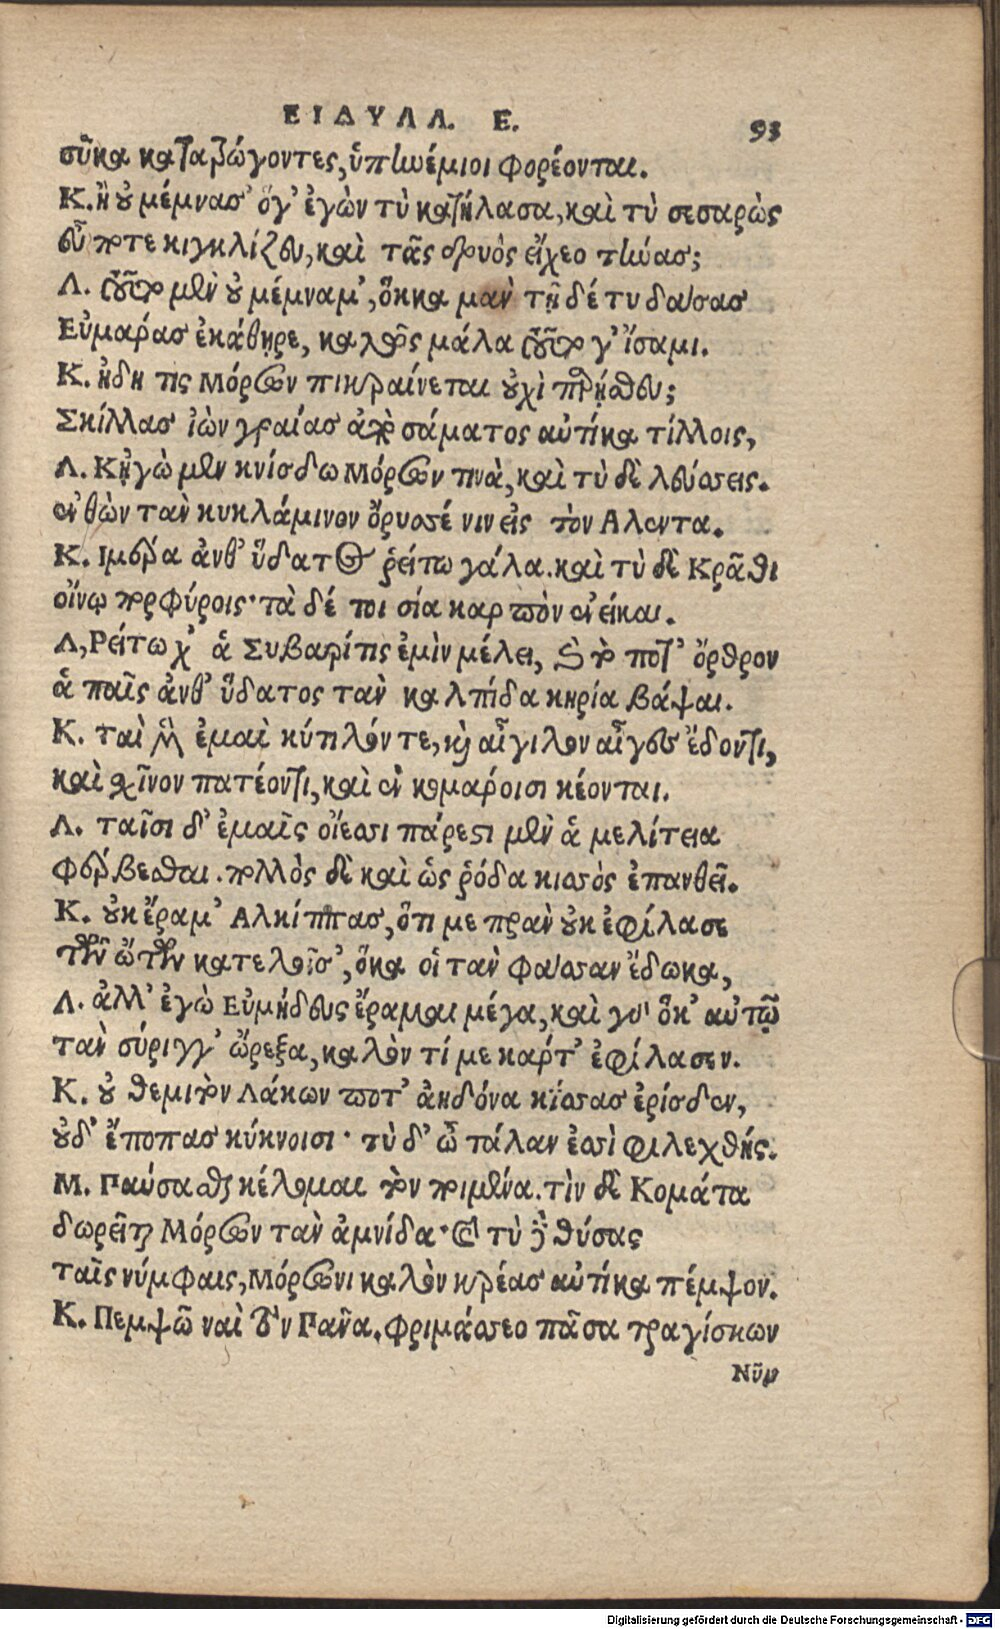 ΕΙΔΥΛΛ. Ε. 93
σῦκα καταβώγοντες, ὑπηνέμιοι φορέονται.
Κ. ἢ οὐ μέμνασ' ὅγ' ἐγὼν τὺ κατήλασα, καὶ τὺ σεσαρὼς
εὖ ποτεκιγκλίζευ, καὶ τᾶς δρυὸς εἴχεο τήνας;
Λ. τοῦτο μὲν οὐ μέμναμ', ὅκκα μὰν τῇδέ τυ δαύσας
Εὐμάρας ἐκάθηρε, καλῶς μάλα τοῦτο γ' ἴσαμι.
Κ. ἤδη τις Μόρσων πικραίνεται οὐχὶ παρῄσθευ;
Σκίλλας ἰὼν γραίας ἀπὸ σάματος αὐτίκα τίλλοις,
Λ. Κἠγὼ μὲν κνίσδω Μόρσων τινὰ, καὶ τὺ δὲ λεύσσεις.
ἐνθὼν τὰν κυκλάμινον ὄρυσσέ νιν εἰς τὸν Αλεντα.
Κ. Ιμέρα ἀνθ' ὕδατος ῥείτω γάλα. καὶ τὺ δὲ Κρᾶθι
οἴνῳ πορφύροις· τὰ δέ τοι σία καρπὸν ἐνείκαι.
Λ, Ρείτω χ' ἁ Συβαρίτις ἐμὶν μέλει, καὶ τὸ ποτ' ὄρθρον
ἁ παῖς ἀνθ' ὕδατος τὰν καλπίδα κηρία βάψαι.
Κ. ταὶ μὲν ἐμαὶ κύτιλόν τε, καὶ αἴγιλον αἶγες ἔδοντι,
καὶ σχῖνον πατέοντι, καὶ ἐν κομάροισι κέονται.
Λ. ταῖσι δ' ἐμαῖς οἴεσσι πάρεστι μὲν ἁ μελίτεια
Φέρβεσθαι. πολλὸς δὲ καὶ ὡς ῥόδα κισσὸς ἐπανθεῖ.
Κ. οὐκ ἔραμ' Αλκίππας, ὅτι με πρὰν οὐκ ἐφίλασε
τῶν ὤτων κατελοῖσ', ὅκα οἱ τὰν φάσσαν ἔδωκα,
Λ. ἀλλ' ἐγὼ Εὐμήδευς ἔραμαι μέγα, καὶ γὰρ ὅκ' αὐτῷ
τὰν σύριγγ' ὤρεξα, καλόν τί με κάρτ' ἐφίλασεν.
Κ. οὐ θεμιτὸν Λάκων ποτ' ἀηδόνα κίσσας ἐρίσδεν,
οὐδ' ἔποπας κύκνοισι· τὺ δ' ὦ τάλαν ἐσσὶ φιλεχθής.
Μ. Παύσασθαι κέλομαι τὸν ποιμένα. τὶν δὲ Κομάτα
δωρεῖται Μόρσων τὰν ἀμνίδα· καὶ τὺ δὲ θύσας
ταῖς νύμφαις, Μόρσωνι καλὸν κρέας αὐτίκα πέμψον.
Κ. Πεμψῶ ναὶ τὸν Πᾶνα. φριμάσσεο πᾶσα τραγίσκων
Νῦν